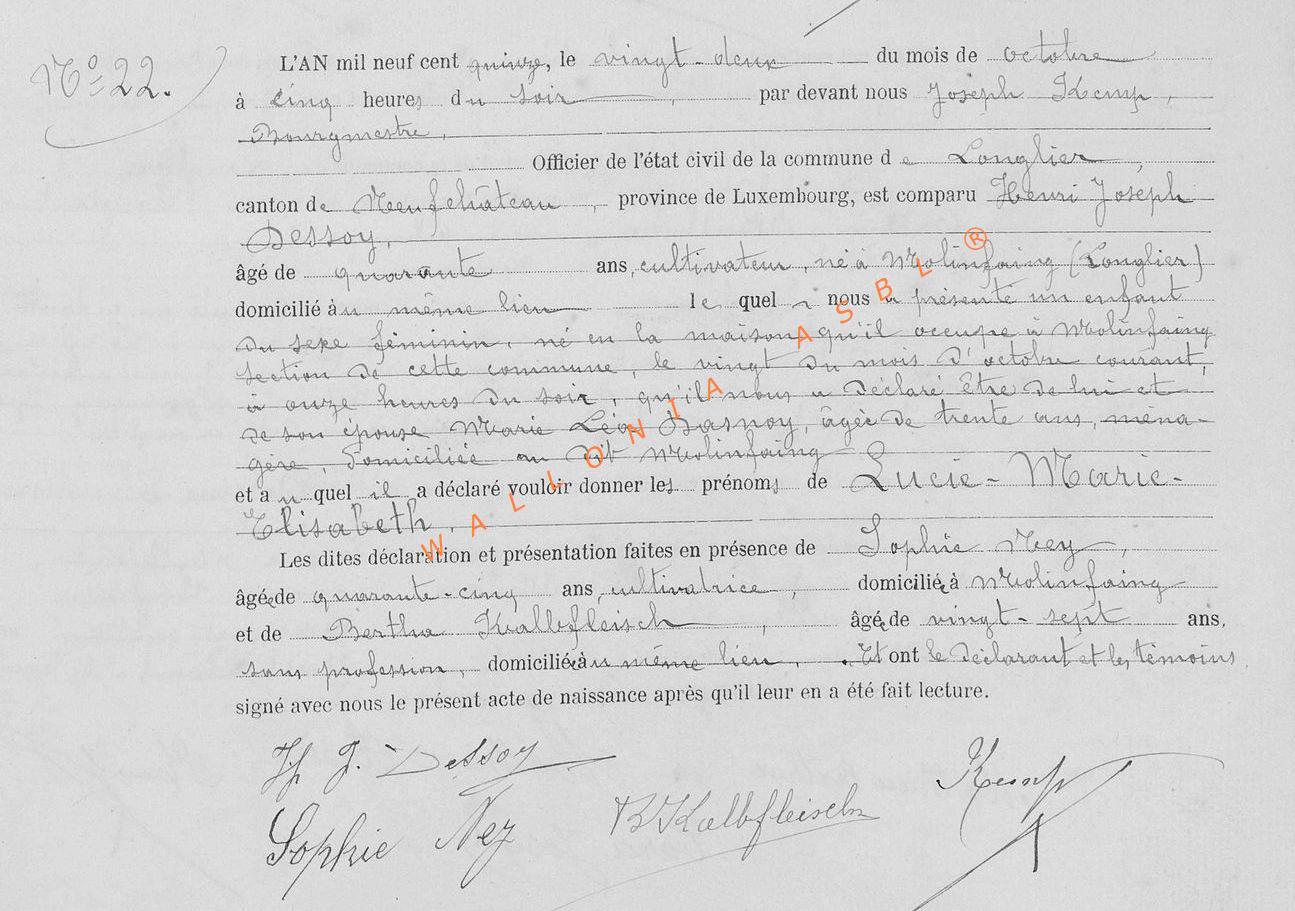 Nº 22.
L'AN mil neuf cent quinze, le vingt-deux du mois de octobre
à cinq heures du soir, par devant nous Joseph Kemp,
Bourgmestre,
Officier de l'état civil de la commune de Longlier,
canton de Neufchâteau, province de Luxembourg, est comparu Henri Joseph
Dessoy,
âgé de quarante ans, cultivateur, né à Molinfaing (Longlier)
domicilié au même lieu lequel nous a présenté un enfant
du sexe féminin, né en la maison qu'il occupe à Molinfaing
section de cette commune, le vingt du mois d'octobre courant,
à onze heures du soir, qu'il nous a déclaré être de lui et
de son épouse Marie Léa Basnoy, âgée de trente ans, ména-
gère, domiciliée au dit Molinfaing
et auquel il a déclaré vouloir donner les prénoms de Lucie-Marie-
Elisabeth.
Les dites déclaration et présentation faites en présence de Sophie Ney,
âgée de quarante-cinq ans, cultivatrice, domiciliée à Molinfaing
et de Bertha Kalbfleisch, âgée de vingt-sept ans,
sans profession, domiciliée au même lieu, . Et ont le déclarant et les témoins
signé avec nous le présent acte de naissance après qu'il leur en a été fait lecture.
J. Dessoy
Kemp
Sophie Ney
B Kalbfleisch
WALLONIA ASBL ®